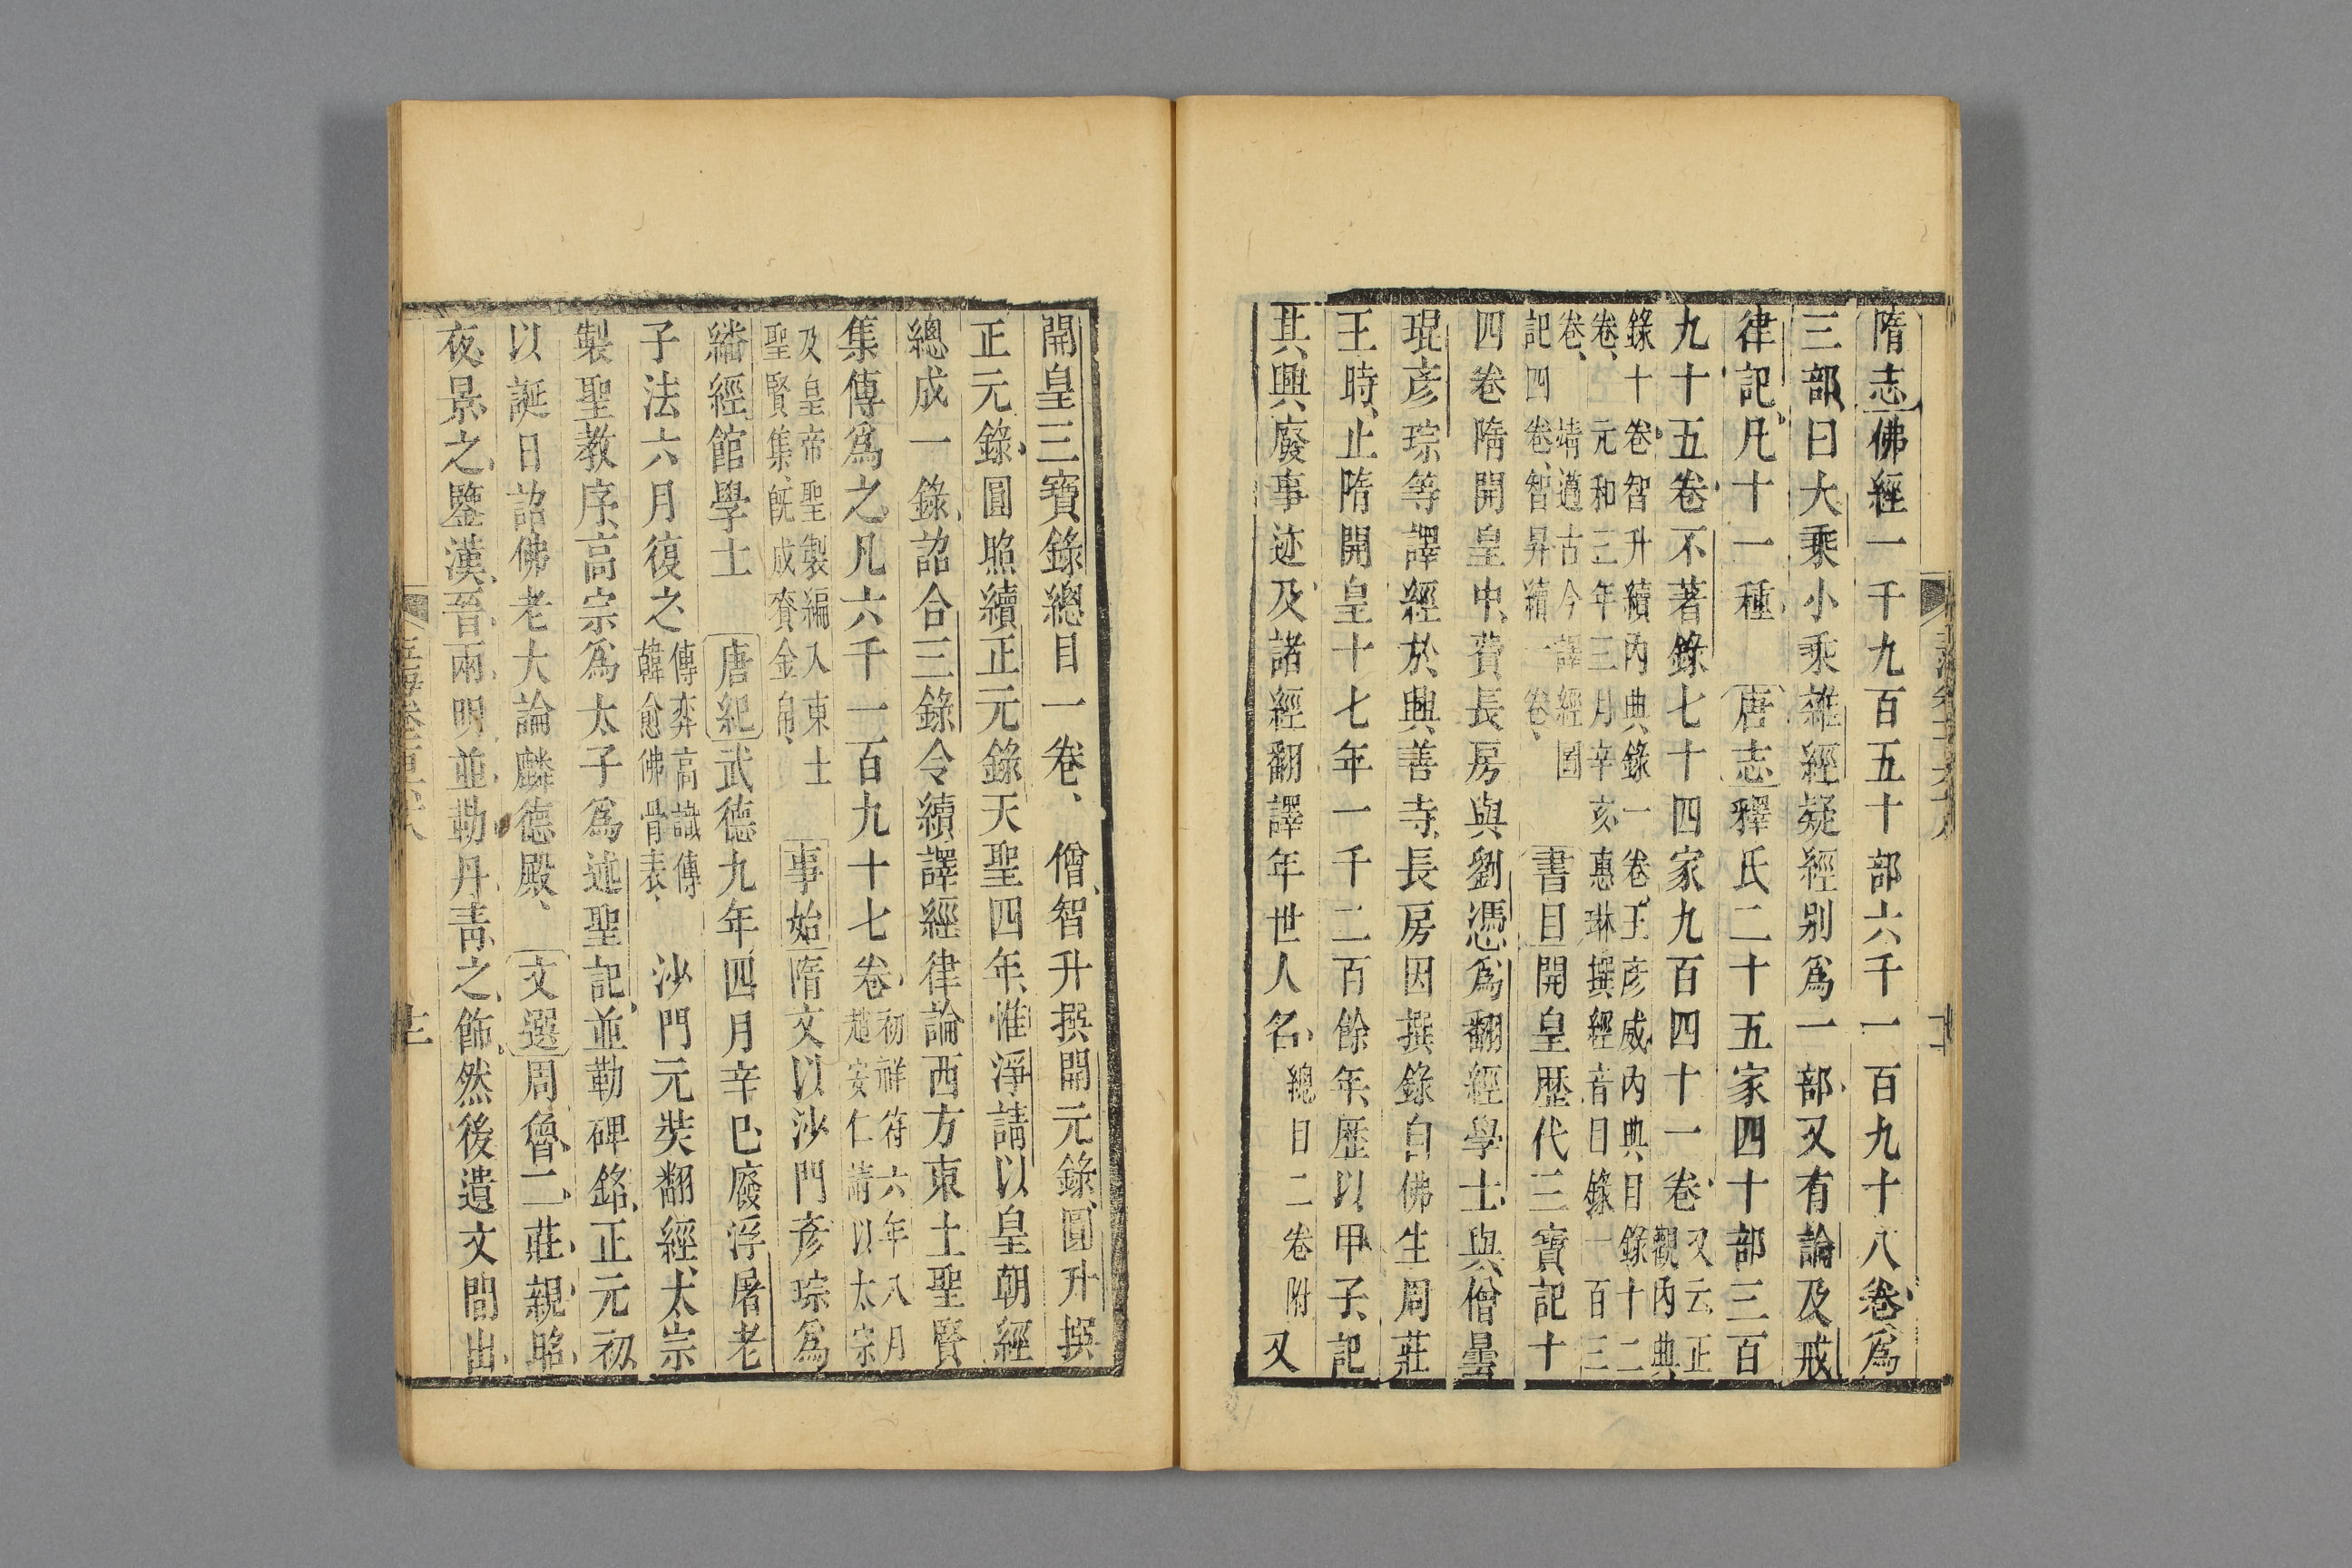 隋志佛經一千九百五十部六千一百九十八卷爲
三部曰大乘小乘雜經疑經别爲一部又有論及戒
律記凡十一種　唐志釋氏二十五家四十部三百
九十五卷不著錄七十四家九百四十一卷又云正觀内典
錄十卷智升續内典錄一卷王彦威内典目錄十二卷元和三年三月辛亥惠琳撰經音目錄一百三
卷靖邁古今譯經圖記四卷智昇續一卷　書目開皇歴代三寶記十
四卷隋開皇中費長房與劉憑爲翻經學士與僧曇
琨彦琮等譯經於興善寺長房因撰錄自佛生周莊
王時止隋開皇十七年一千二百餘年歴以甲子記
其興廢事迹及諸經翻譯年世人名總目二卷附又
開皇三寶錄總目一卷　僧智升撰開元錄圓升撰
正元錄圓照續正元錄天聖四年惟淨請以皇朝經
總成一錄詔合三錄令續譯經律論西方東土聖賢
集傳爲之凡六千一百九十七卷初祥符六年八月趙安仁請以太宗
及皇帝聖製編入東土聖賢集既成賚金帛　事始隋文以沙門彦琮爲
繙經館學士　唐紀武德九年四月辛巳廢浮屠老
子法六月復之傅奕高識傳韓愈佛骨表　沙門元奘翻經太宗
製聖教序高宗爲太子爲述聖記並勒碑銘正元初
以誕日詔佛老大論麟德殿　文選周魯二莊親昭
夜景之鑒漢晉兩明並勒丹青之飾然後遺文間出